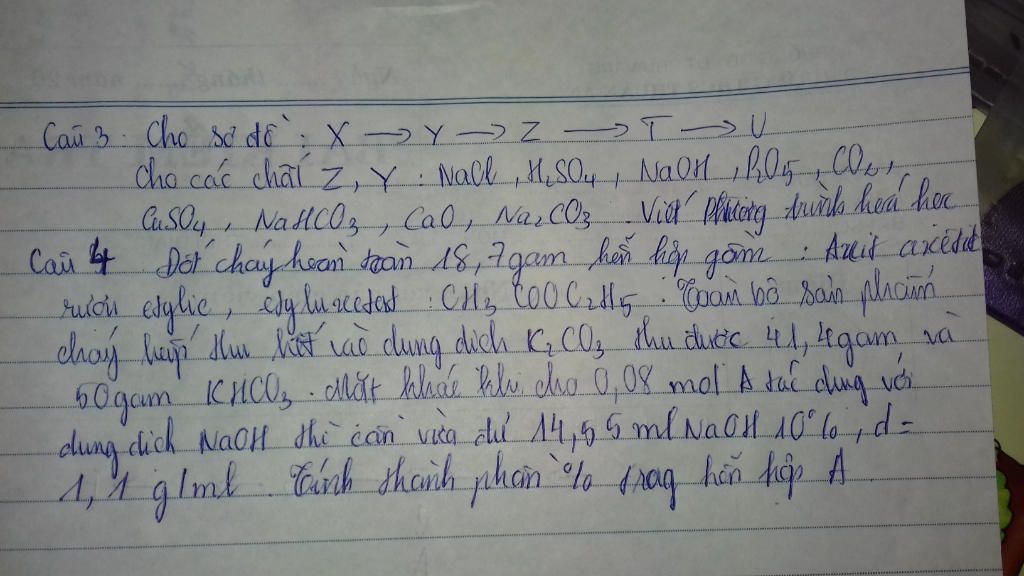 Câu 3: Cho sơ đồ: X → Y → Z → T → U
Cho các chất Z, Y: NaCl, H₂SO₄, NaOH, P₂O₅, CO₂,
CuSO₄, NaHCO₃, CaO, Na₂CO₃. Viết phương trình hoá học
Câu 4 Đốt cháy hoàn toàn 18,7gam hỗn hợp gồm: Axit axêtat
rượu etylic, etylaxetat: CH₃COOC₂H₅. Toàn bộ sản phẩm
cháy hấp thu hết vào dung dịch K₂CO₃ thu được 41,4gam và
50gam KHCO₃. Mặt khác khi cho 0,08 mol A tác dụng với
dung dịch NaOH thì cần vừa đủ 14,55ml NaOH 10%, d=
1,1 g/ml. Tính thành phần % trag hỗn hợp A